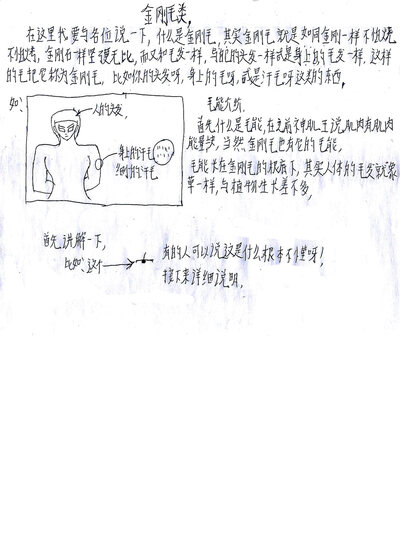 金刚毛类,
在这里我要与各位说一下,什么是金刚毛,其实金刚毛就是如同金刚一样不怕烧
不怕烤,金刚石一样坚硬无比,而又和毛发一样,与配的头发一样或是身上的毛发一样,这样
的毛把它称为金刚毛,比如你的头发呀,身上的毛呀,或是汗毛呀这类的东西,
如:
人的头发,
身上的汗毛
细小的汗毛
毛能介绍.
首先什么是毛能,在之前神肌王说肌肉有肌肉
能量类,当然金刚毛也有它的毛能,
毛能来在金刚毛的根扇下,其实人体的毛发就象
草一样,与植物生长差不多,
首先讲解一下,
比如:这个
有的人可以说这是什么根本不懂呀!
接下来详细说明,